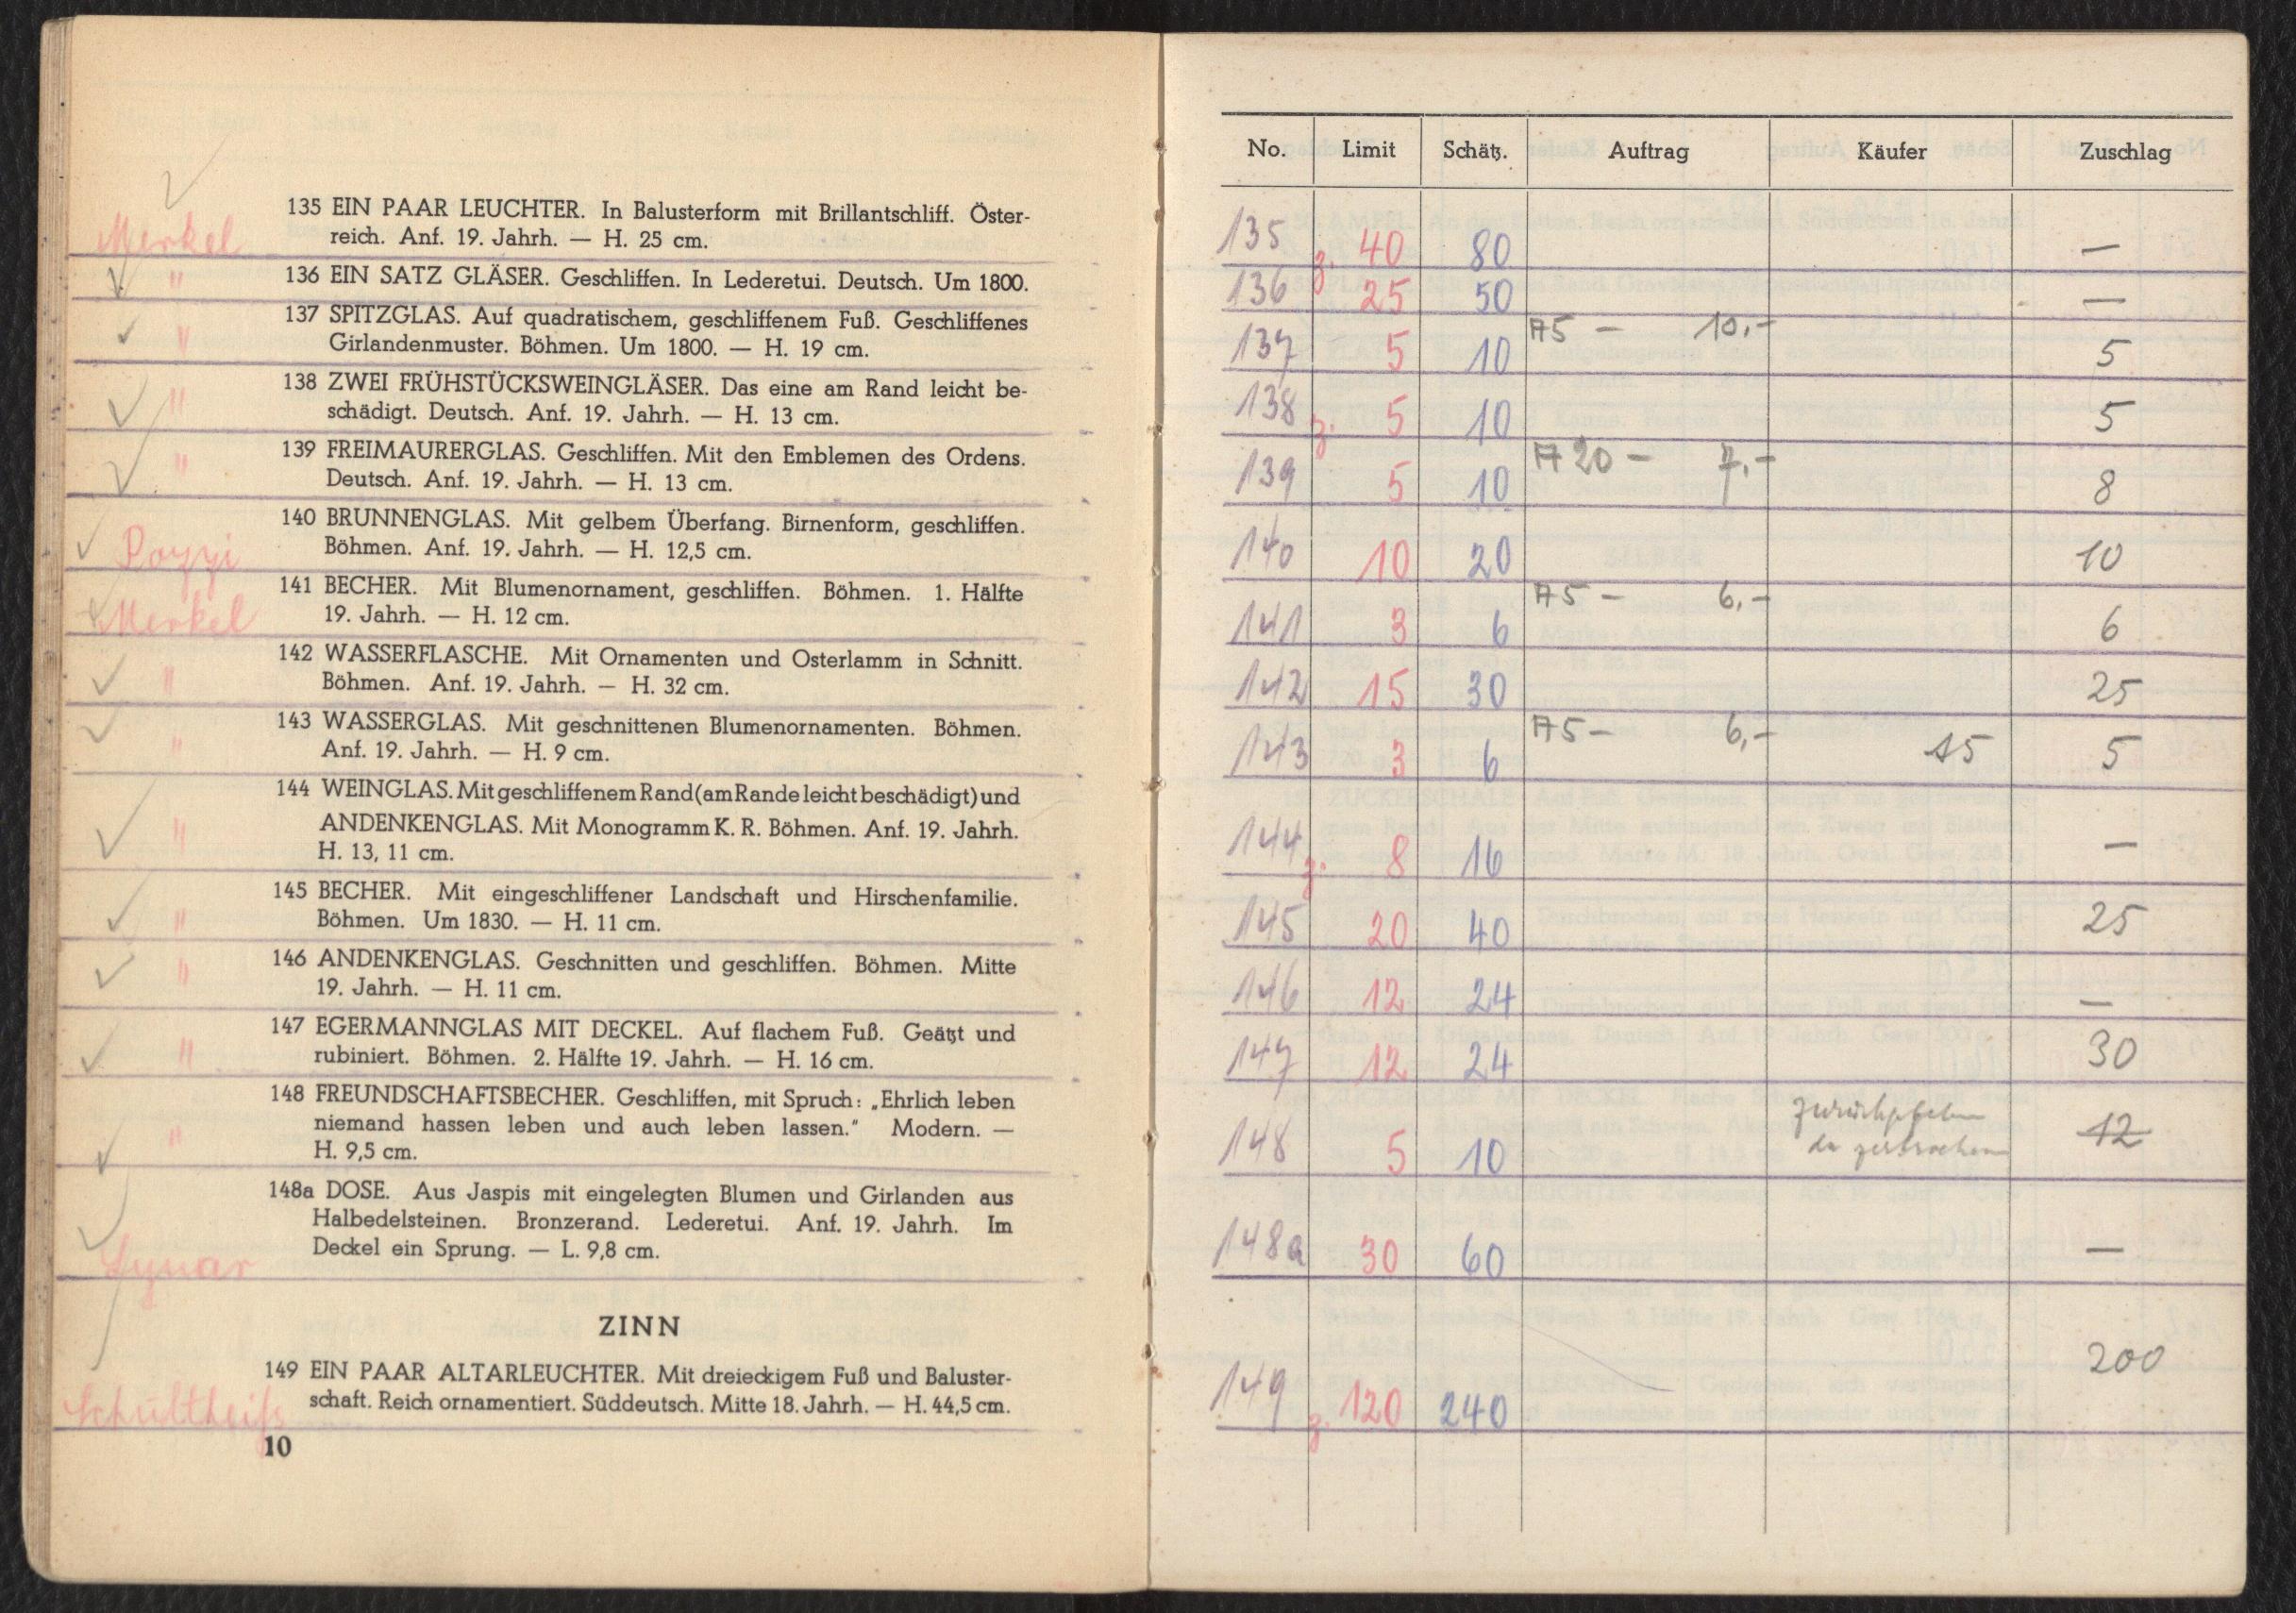 135 EIN PAAR LEUCHTER. In Balusterform mit Brillantschliff. Öster-
Merkel reich. Anf. 19. Jahrh. — H. 25 cm.
" 136 EIN SATZ GLÄSER. Geschliffen. In Lederetui. Deutsch. Um 1800.
137 SPITZGLAS. Auf quadratischem, geschliffenem Fuß. Geschliffenes
" Girlandenmuster. Böhmen. Um 1800. — H. 19 cm.
138 ZWEI FRÜHSTÜCKSWEINGLÄSER. Das eine am Rand leicht be-
" schädigt. Deutsch. Anf. 19. Jahrh. — H. 13 cm.
139 FREIMAURERGLAS. Geschliffen. Mit den Emblemen des Ordens.
" Deutsch. Anf. 19. Jahrh. — H. 13 cm.
140 BRUNNENGLAS. Mit gelbem Überfang. Birnenform, geschliffen.
Pozzi Böhmen. Anf. 19. Jahrh. — H. 12,5 cm.
141 BECHER. Mit Blumenornament, geschliffen. Böhmen. 1. Hälfte
Merkel 19. Jahrh. — H. 12 cm.
142 WASSERFLASCHE. Mit Ornamenten und Osterlamm in Schnitt.
" Böhmen. Anf. 19. Jahrh. — H. 32 cm.
143 WASSERGLAS. Mit geschnittenen Blumenornamenten. Böhmen.
" Anf. 19. Jahrh. — H. 9 cm.
144 WEINGLAS. Mit geschliffenem Rand (am Rande leicht beschädigt) und
" ANDENKENGLAS. Mit Monogramm K. R. Böhmen. Anf. 19. Jahrh.
H. 13, 11 cm.
145 BECHER. Mit eingeschliffener Landschaft und Hirschenfamilie.
" Böhmen. Um 1830. — H. 11 cm.
146 ANDENKENGLAS. Geschnitten und geschliffen. Böhmen. Mitte
" 19. Jahrh. — H. 11 cm.
147 EGERMANNGLAS MIT DECKEL. Auf flachem Fuß. Geätzt und
" rubiniert. Böhmen. 2. Hälfte 19. Jahrh. — H. 16 cm.
148 FREUNDSCHAFTSBECHER. Geschliffen, mit Spruch: „Ehrlich leben
" niemand hassen leben und auch leben lassen." Modern. —
H. 9,5 cm.
148a DOSE. Aus Jaspis mit eingelegten Blumen und Girlanden aus
Halbedelsteinen. Bronzerand. Lederetui. Anf. 19. Jahrh. Im
Lynar Deckel ein Sprung. — L. 9,8 cm.
ZINN
149 EIN PAAR ALTARLEUCHTER. Mit dreieckigem Fuß und Baluster-
Schultheiß schaft. Reich ornamentiert. Süddeutsch. Mitte 18. Jahrh. — H. 44,5 cm.
10
No. Limit Schätz. Auftrag Käufer Zuschlag
135 z. 40 80 —
136 25 50 —
137 5 10 A5 — 10,- 5
138 z. 5 10 5
139 5 10 A 20 — 7,- 8
140 10 20 10
141 3 6 A5 — 6,- 6
142 15 30 25
143 3 6 A5 — 6,- A5 5
144 z. 8 16 —
145 20 40 25
146 12 24 —
147 12 24 30
148 5 10 zurückgegeben 12
da zerbrochen
148a 30 60 —
149 z. 120 240 200